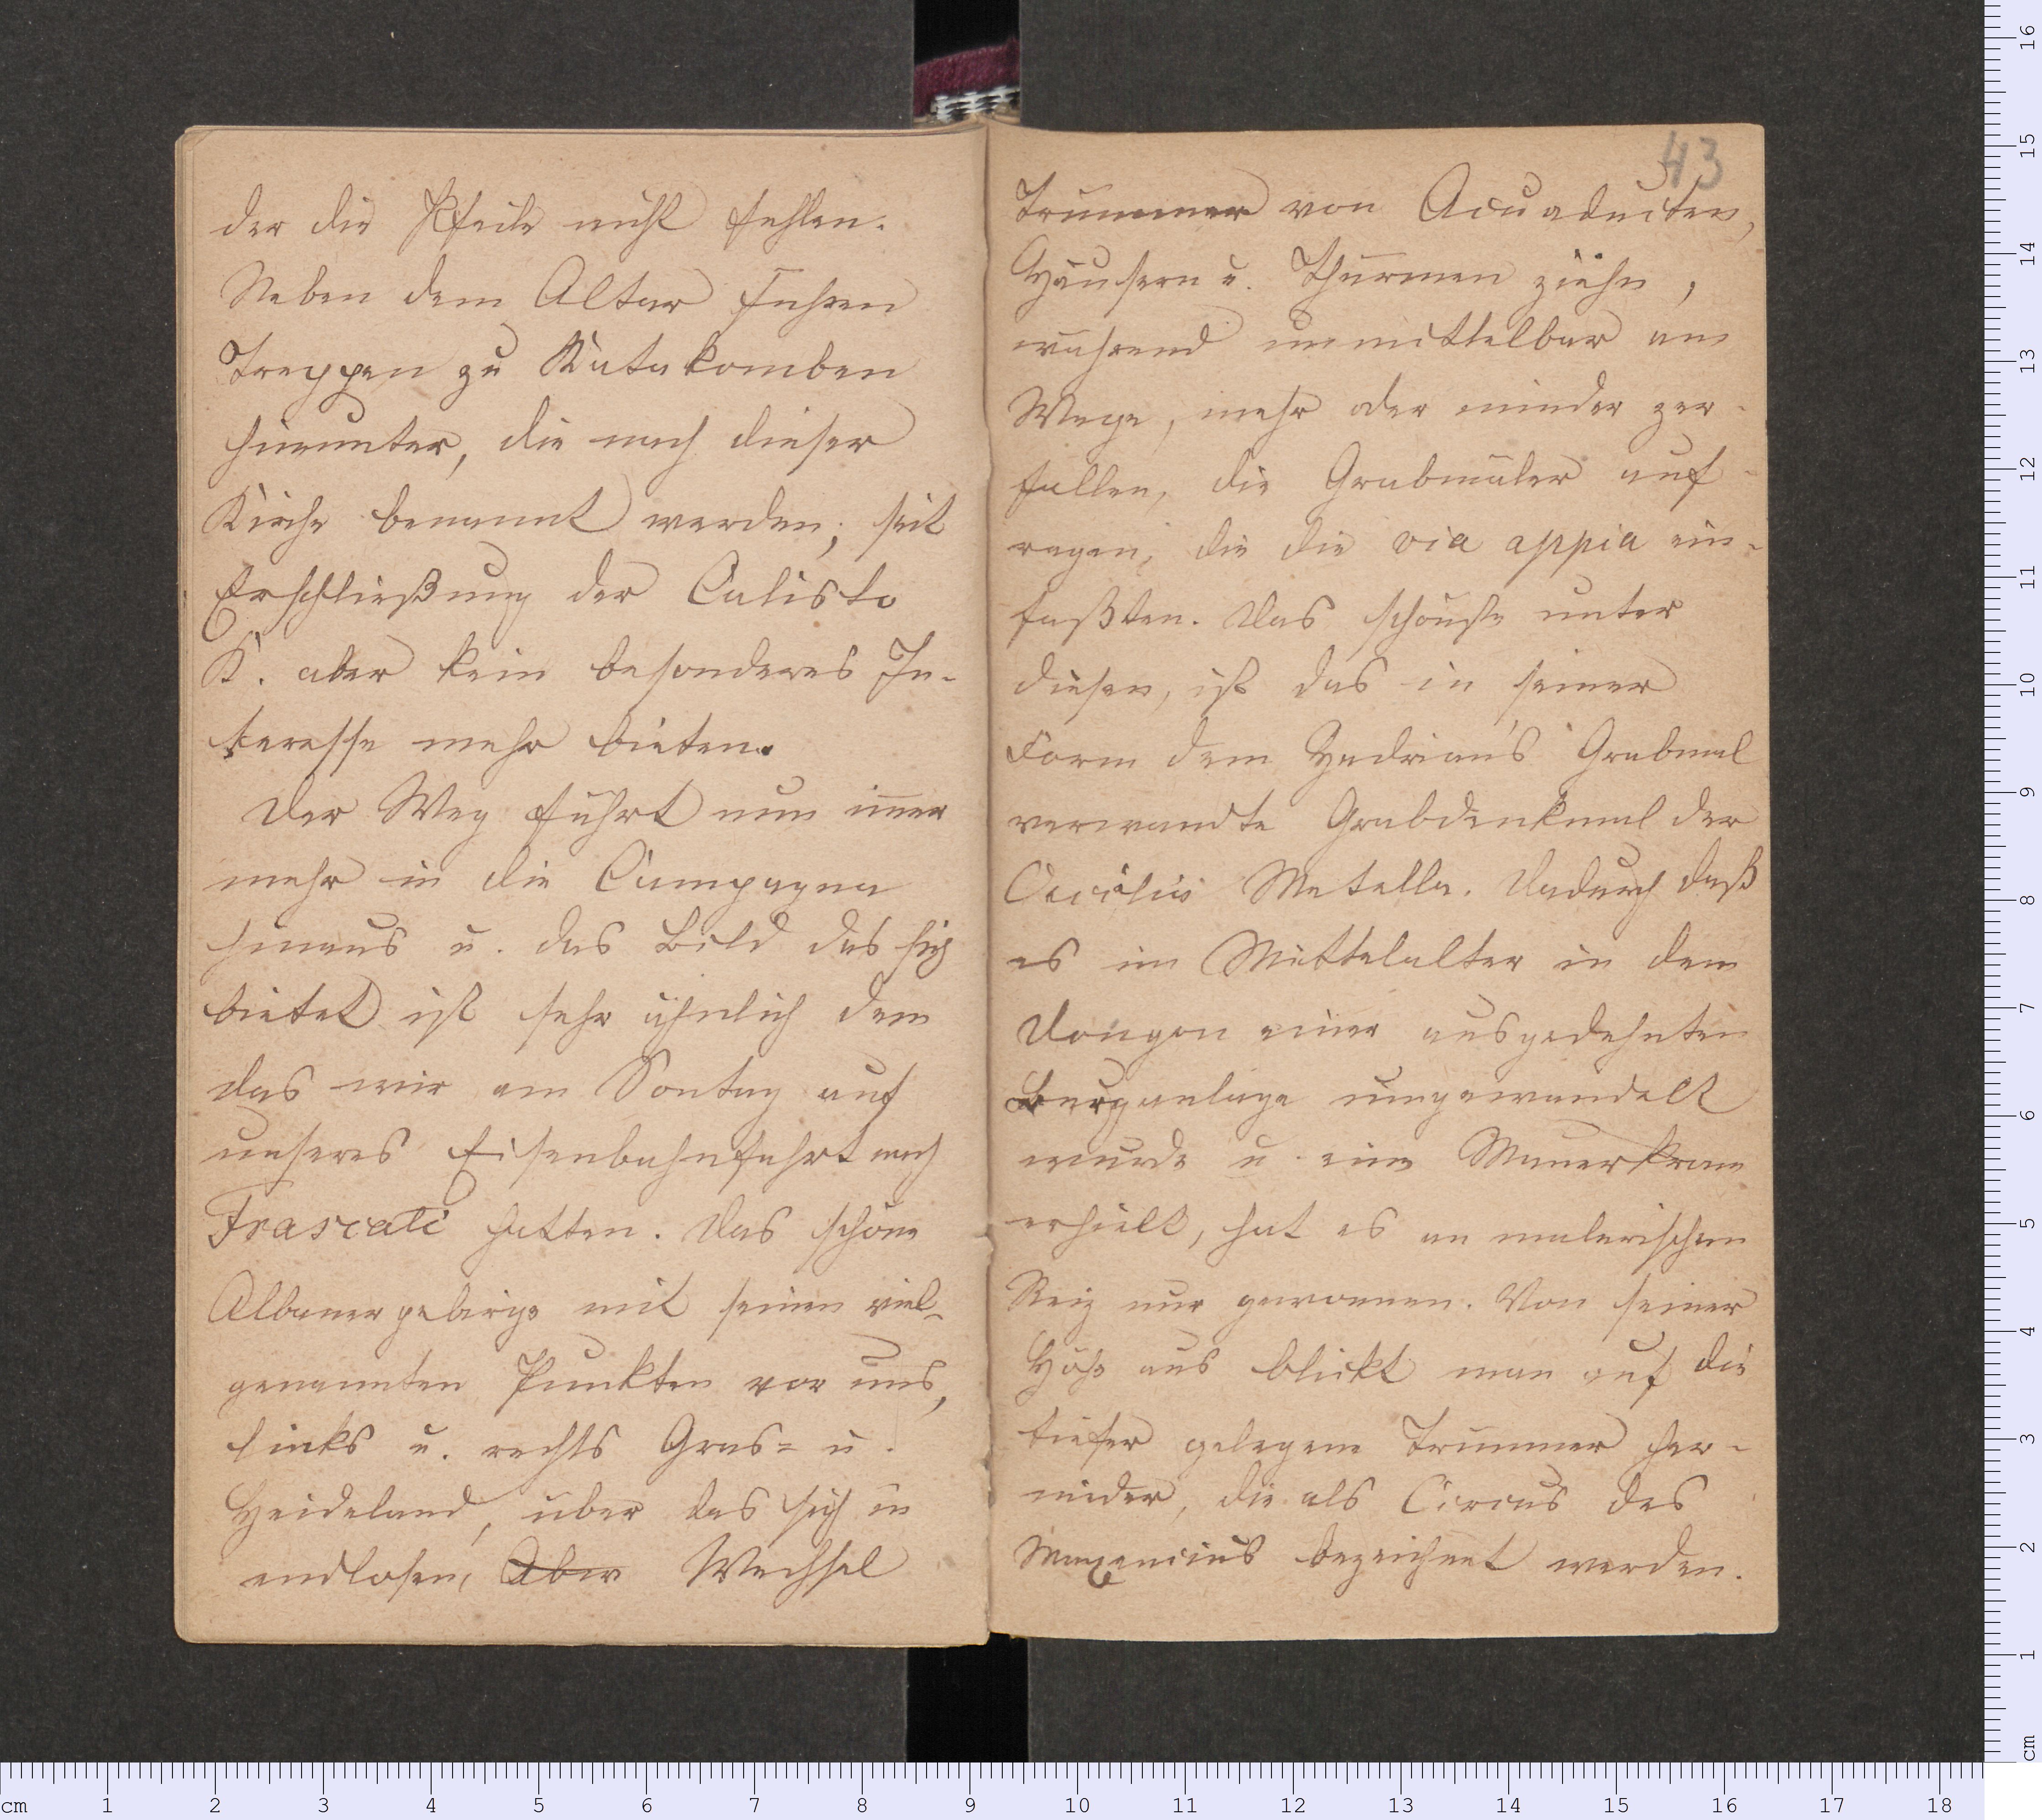 der die Pfeile nicht fehlen.
Neben dem Altar führen
Treppen zu Katakomben
hinunter, die nach dieser
Kirche benannt werden; seit
Erschließung der Calisto
K. aber kein besonderes In-
teresse mehr bieten.
Der Weg führt nun im̄er
mehr in die Campagna
hinaus u. das Bild das sich
bietet ist sehr ähnlich dem
das wir am Sontag auf
unseres Eisenbahnfahrt nach
Frascati hatten. Das schöne
Albanergebirge mit seinen viel-
genannten Punkten vor uns,
links u. rechts Gras= u.
Heideland, über das sich in
endlosen, Aber Wechsel
43
Trümmer von Acuaducten,
Häusern u. Thürmen ziehn,
während unmittelbar am
Wege, mehr oder minder zer-
fallen, die Grabmäler auf-
ragen, die die via appia ein-
faßten. Das schönste unter
diesen, ist das in seiner
Form dem Hadrian's Grabmal
verwandte Grabdenkmal der
Cecilia Metella. Dadurch daß
es im Mittelalter in den
Dongon einer ausgedehnten
Burganlage umgewandelt
wurde u. eine Mauerkrone
erhielt, hat es an malerischem
Reiz nur gewonnen. Von seiner
Höhe aus blickt man auf die
tiefer gelegene Trümmer her-
nieder, die als Circus des
Maxencius bezeichnet werden.